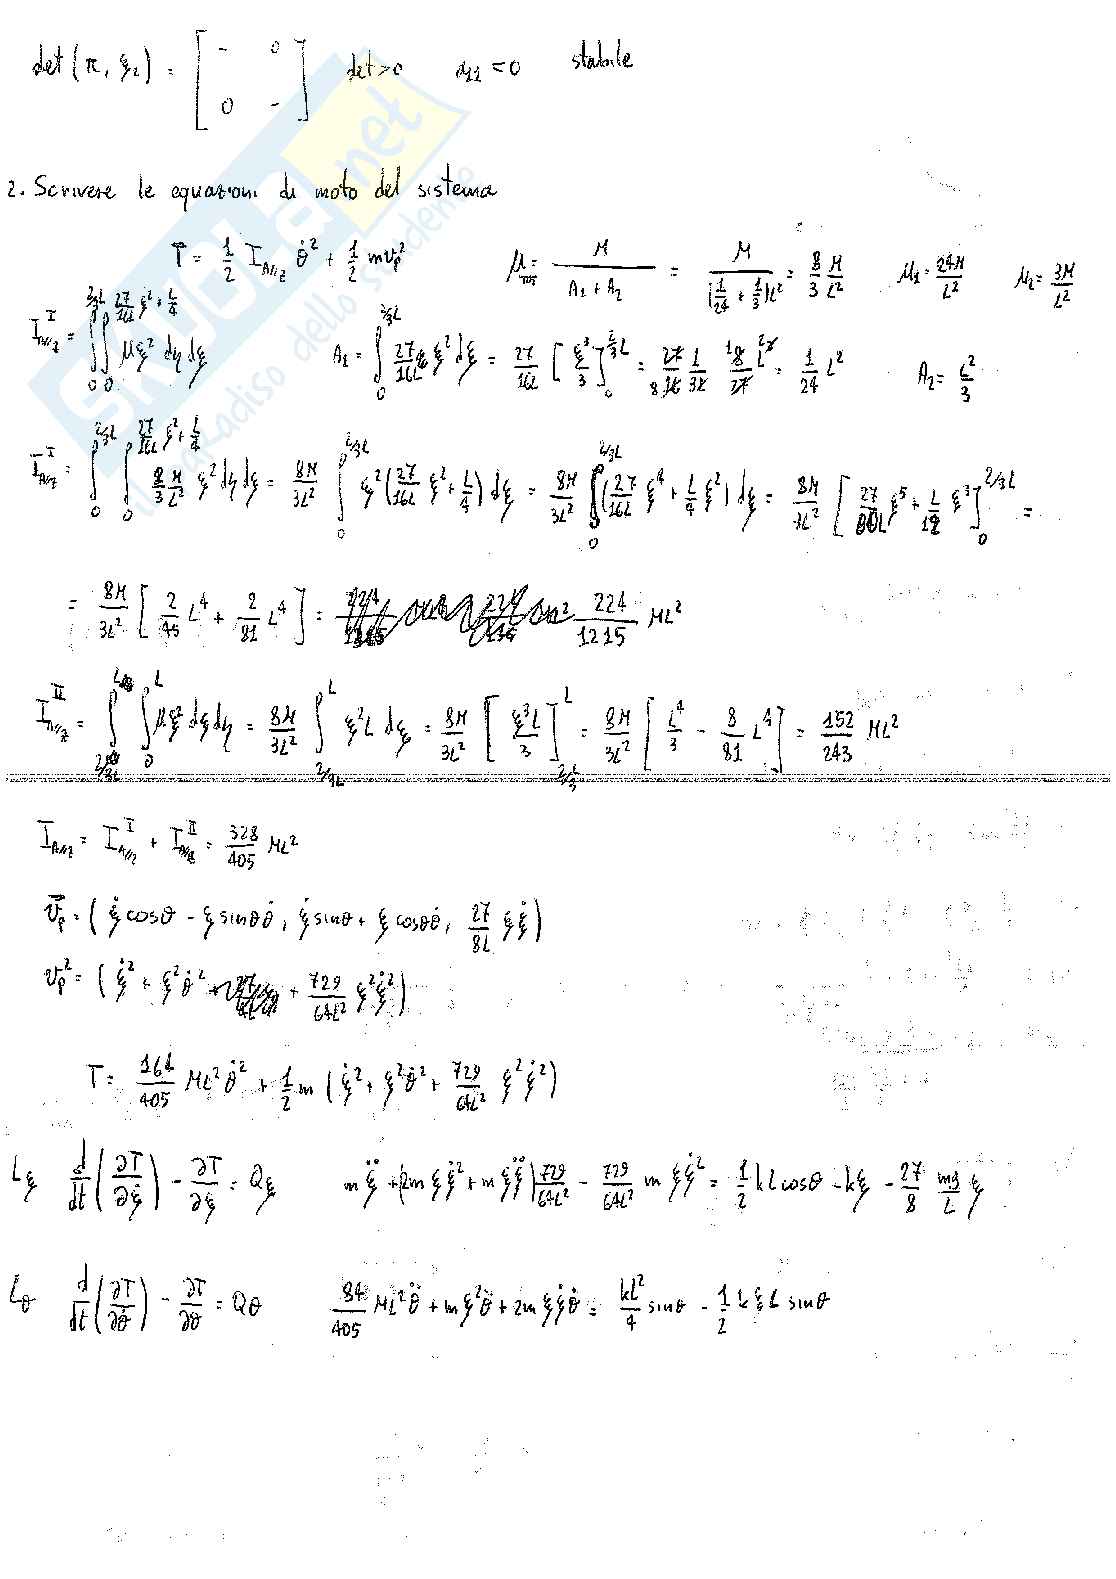 det(π, ξ₂) = [ - 0 ; 0 - ] det>0 a₁₁<0 stabile
2. Scrivere le equazioni di moto del sistema
T = 1/2 I_{A/z} θ̇² + 1/2 m v_P²
μ_tot = M/(A₁+A₂) = M/((1/24 + 1/3)L²) = 8/3 M/L² μ₁ = 24M/L² μ₂ = 3M/L²
I^I_{A/z} = ∫₀^{2/3L} ∫₀^{27/16L ξ² + L/4} μξ² dη dξ A₁ = ∫₀^{2/3L} 27/16L ξ² dξ = 27/16L [ξ³/3]₀^{2/3L} = 1/24 L² A₂ = L²/3
I^I_{A/z} = ∫₀^{2/3L} ∫₀^{27/16L ξ² + L/4} 8/3 M/L² ξ² dη dξ = 8M/3L² ∫₀^{2/3L} ξ²(27/16L ξ² + L/4) dξ = 8M/3L² ∫₀^{2/3L} (27/16L ξ⁴ + L/4 ξ²) dξ = 8M/3L² [27/80L ξ⁵ + L/12 ξ³]₀^{2/3L} =
= 8M/3L² [2/45 L⁴ + 2/81 L⁴] = 224/1215 ML²
I^II_{A/z} = ∫_{2/3L}^{L} ∫₀^{L} μξ² dξ dη = 8M/3L² ∫_{2/3L}^{L} ξ²L dξ = 8M/3L² [ξ³L/3]_{2/3}^{L} = 8M/3L² [L⁴/3 - 8/81 L⁴] = 152/243 ML²
I_{A/z} = I^I_{A/z} + I^II_{A/z} = 328/405 ML²
v⃗_P = (ξ̇ cosθ - ξ sinθ θ̇, ξ̇ sinθ + ξ cosθ θ̇, 27/8L ξ ξ̇)
v_P² = (ξ̇² + ξ² θ̇² + 729/64L² ξ² ξ̇²)
T = 164/405 ML² θ̇² + 1/2 m (ξ̇² + ξ² θ̇² + 729/64L² ξ² ξ̇²)
L_ξ d/dt(∂T/∂ξ̇) - ∂T/∂ξ = Q_ξ m ξ̈ + (2m ξ ξ̇² + m ξ ξ̈) 729/64L² - 729/64L² m ξ ξ̇² = 1/2 kL cosθ - kξ - 27/8 mg/L ξ
L_θ d/dt(∂T/∂θ̇) - ∂T/∂θ = Qθ 84/405 ML² θ̈ + m ξ² θ̈ + 2m ξ ξ̇ θ̇ = kL²/4 sinθ - 1/2 k ξ L sinθ